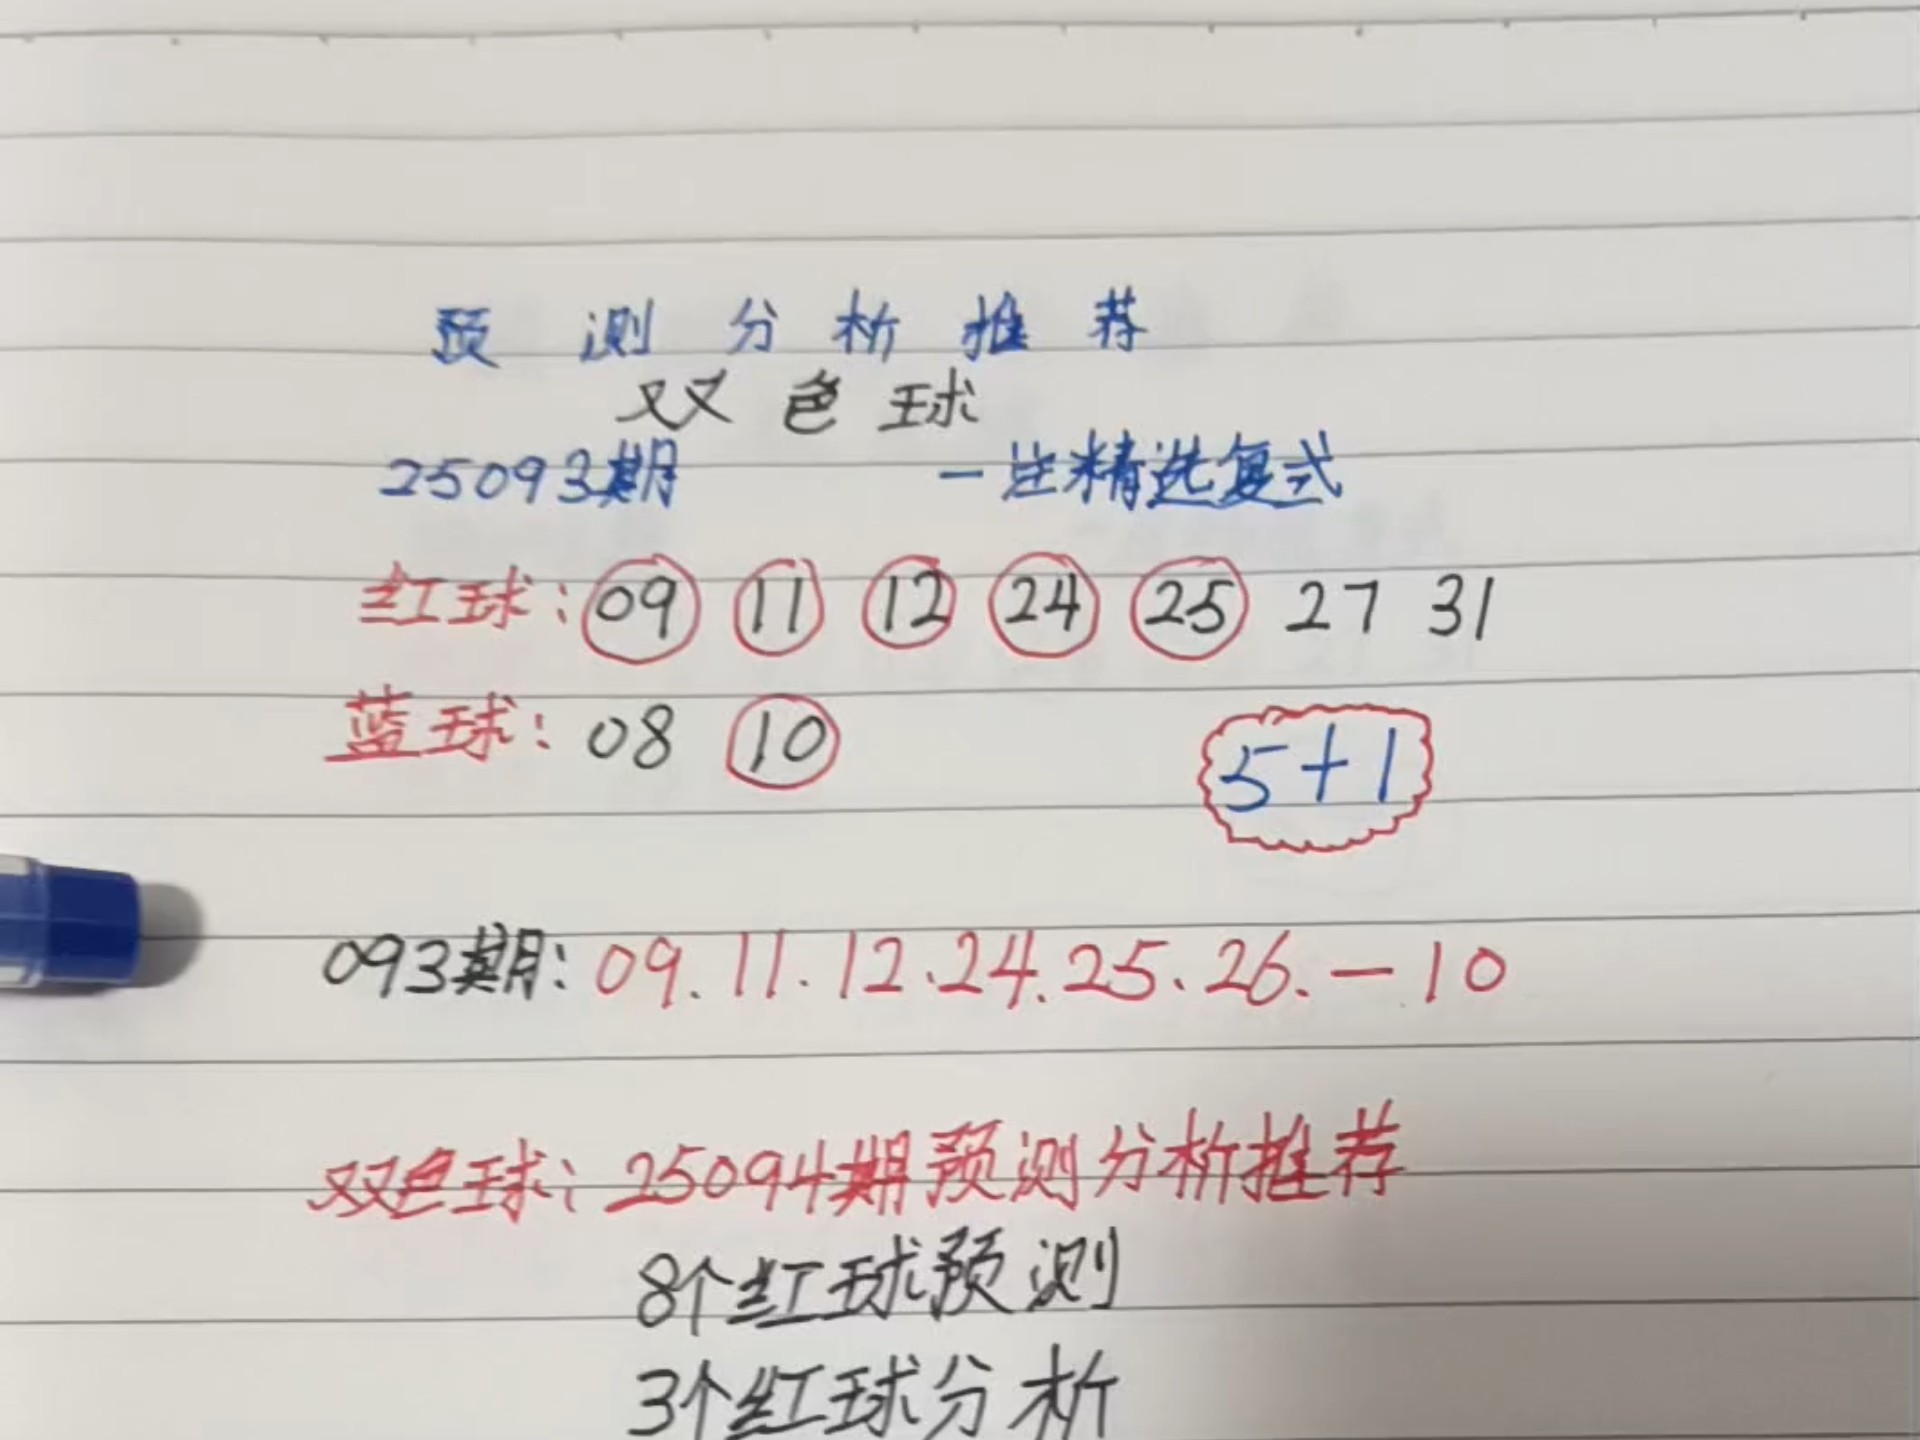 预测分析推荐
双色球
25093期 一注精选复式
红球：09 11 12 24 25 27 31
蓝球：08 10
5+1
093期：09.11.12.24.25.26.—10
双色球：25094期预测分析推荐
8个红球预测
3个红球分析